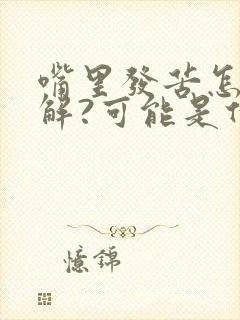 嘴里发苦怎
解?可能是
憶錦